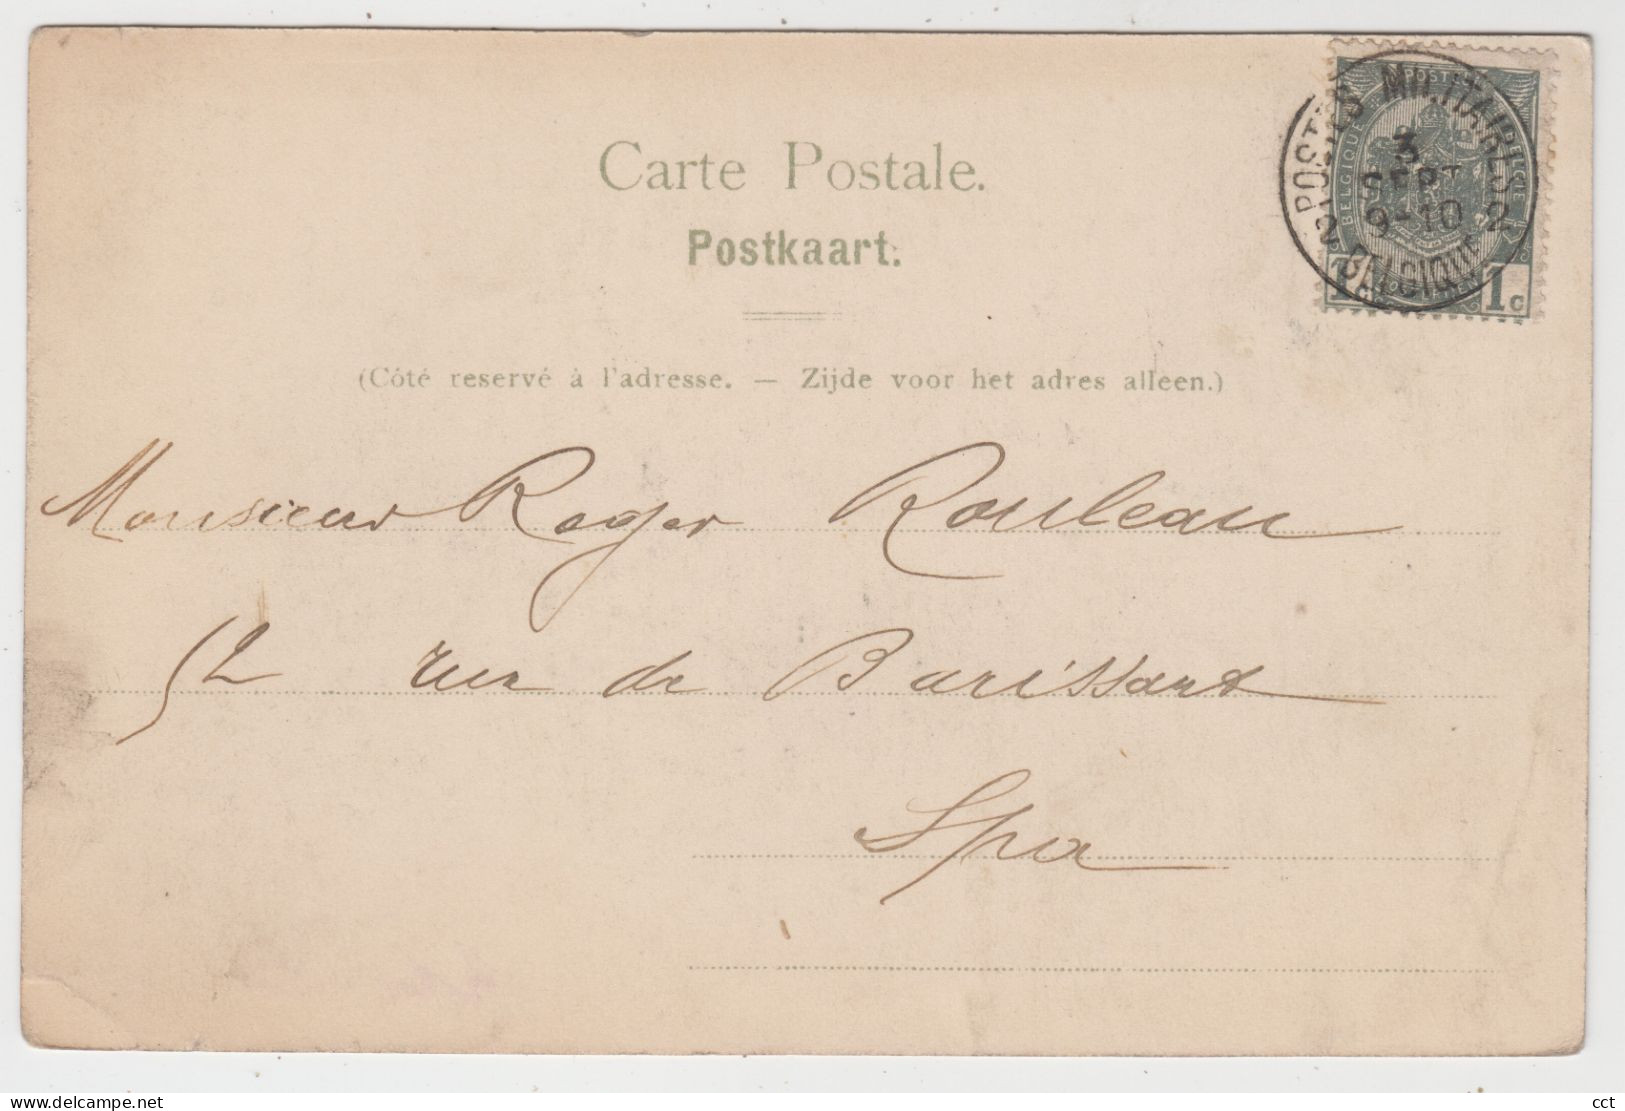 Carte Postale.
Postkaart.
(Côté reservé à l'adresse. — Zijde voor het adres alleen.)
POSTES MILITAIRES
3
SEPT
9-10
2 BELGIQUE 2
POSTES
BELGIQUE
BELGIE
1c
Monsieur Roger Rouleau
52 rue de Barissart
Spa
www.delcampe.net
cct